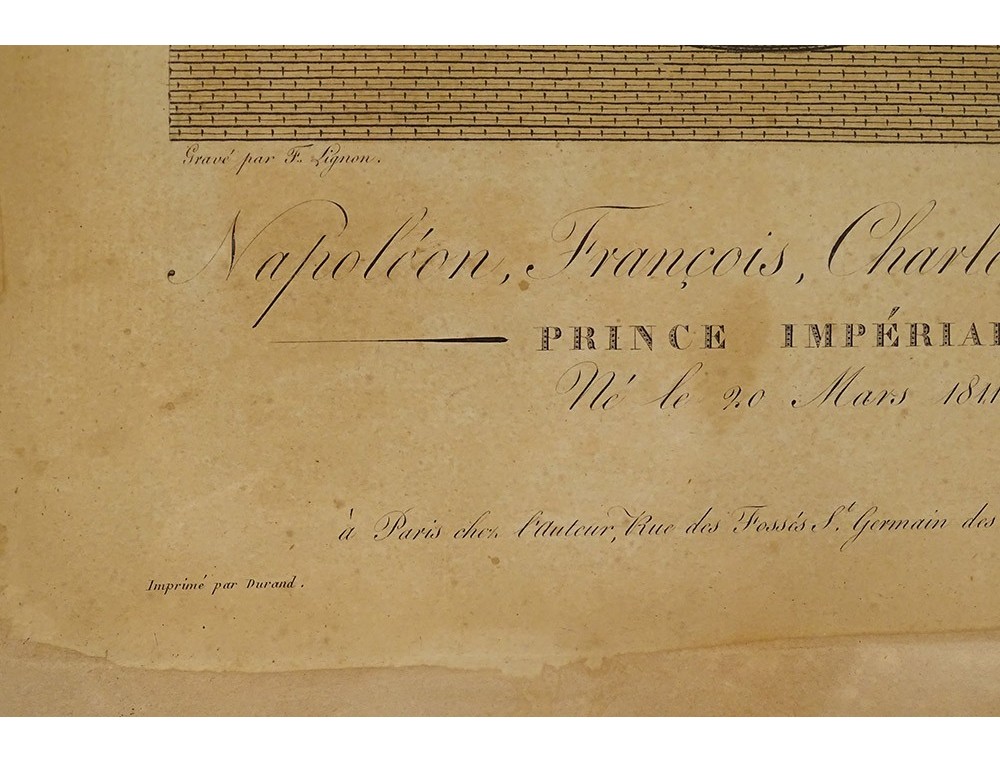 Gravé par F. Lignon.
Napoléon, François, Charl
PRINCE IMPÉRIAL
Né le 20 Mars 1811
à Paris chez l'Auteur, Rue des Fossés St. Germain des
Imprimé par Durand.